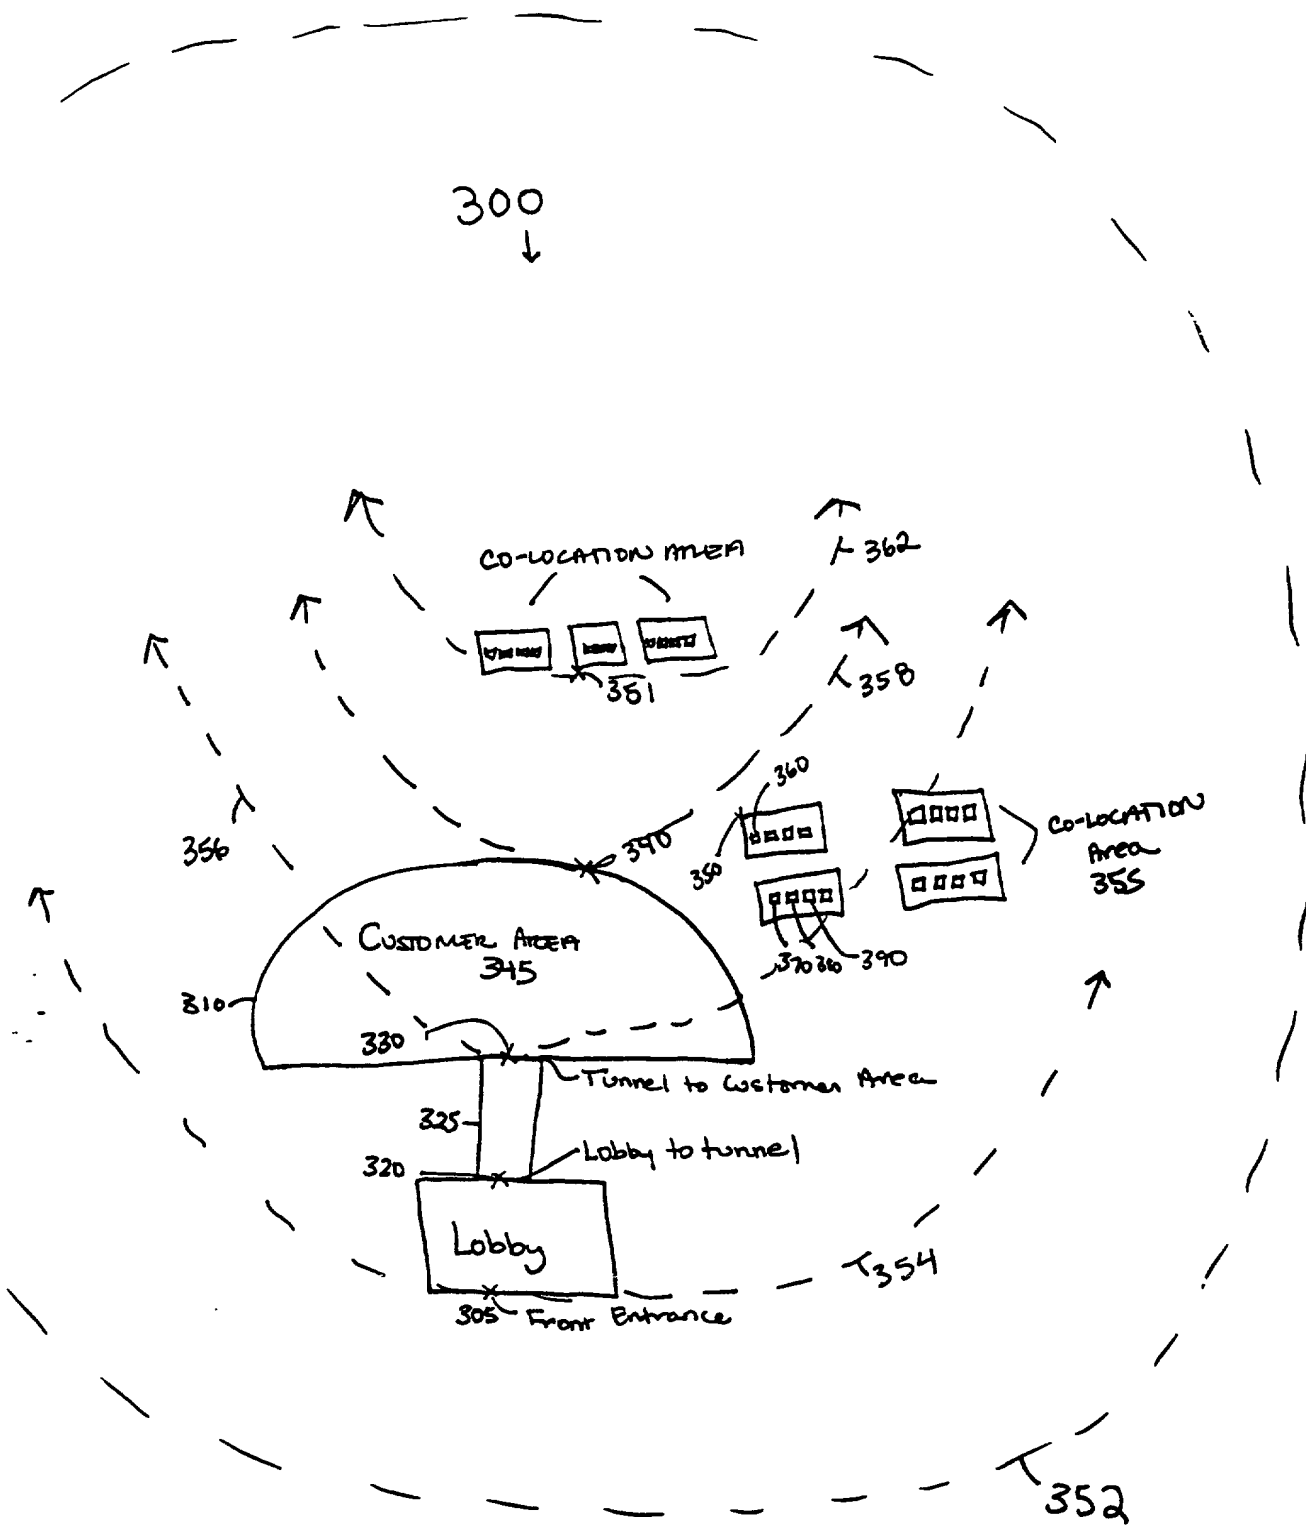 300
CO-LOCATION AREA
362
351
358
360
CO-LOCATION
Area
355
350
390
356
CUSTOMER AREA
345
370 380 390
310
330
Tunnel to Customer Area
325
Lobby to tunnel
320
Lobby
354
305 Front Entrance
352